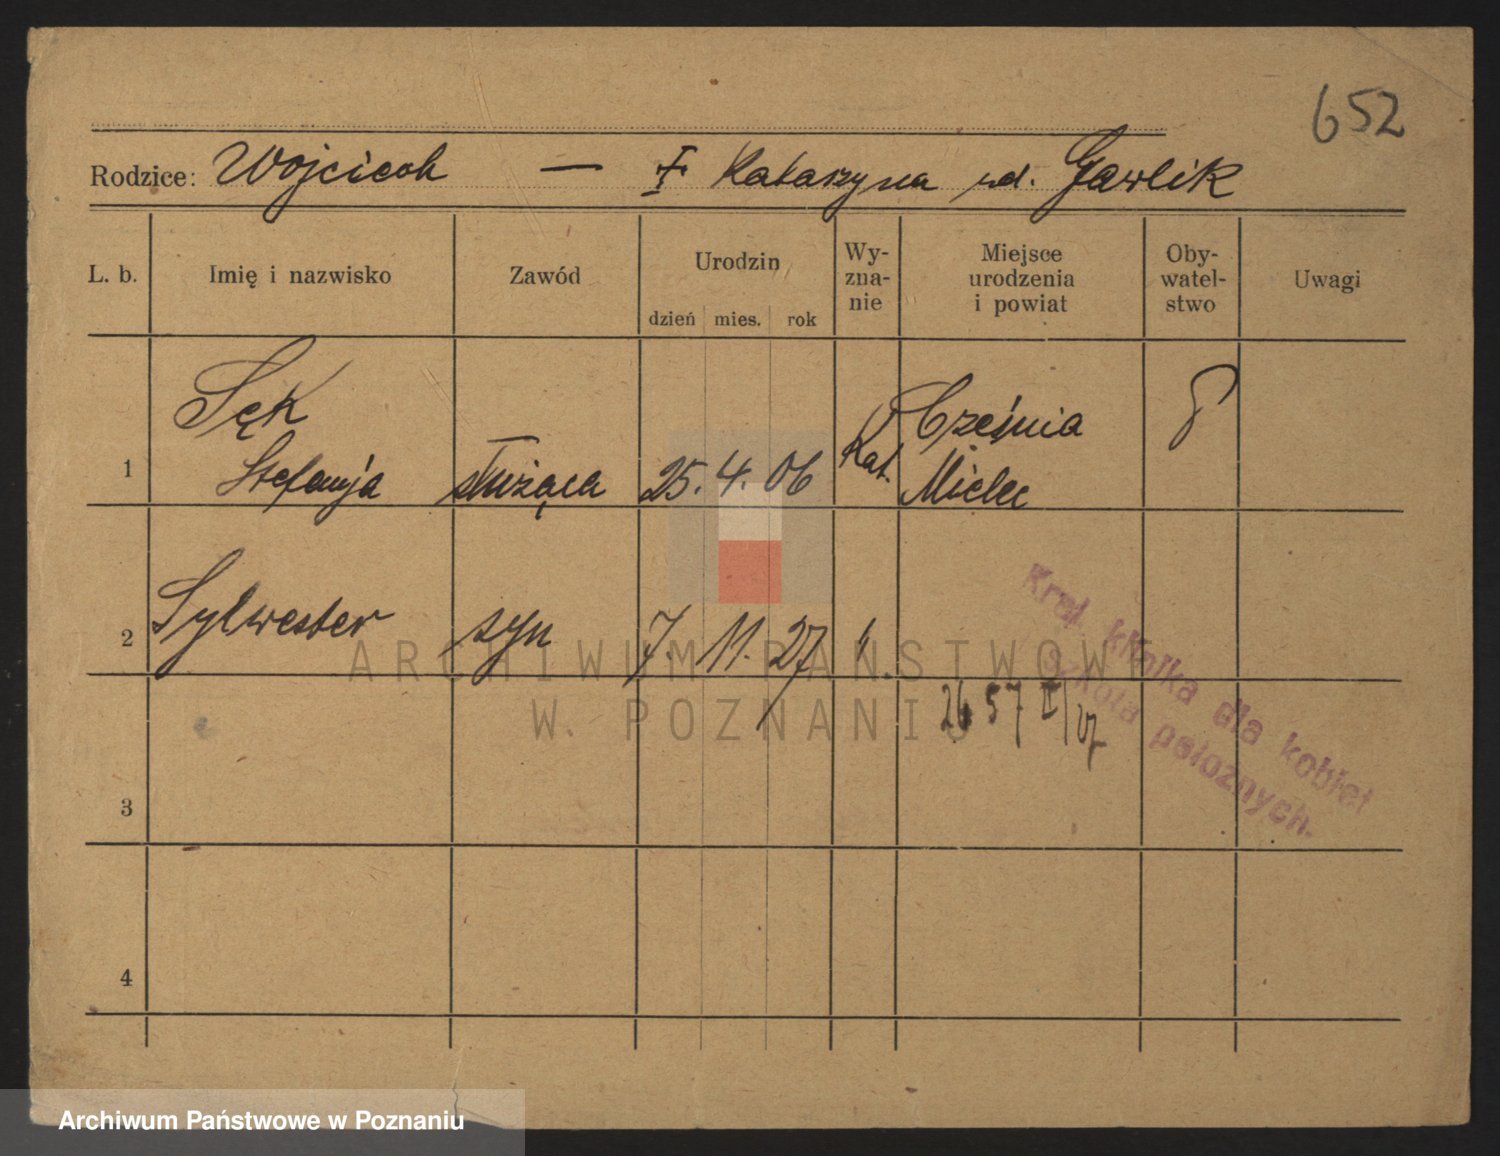 652
Rodzice: Wojciech — Katarzyna ud. Gawlik
L. b. Imię i nazwisko Zawód Urodzin Wy-zna-nie Miejsce urodzenia i powiat Oby-watel-stwo Uwagi
dzień mies. rok
Sęk Cześnia
1 Stefanja służąca 25. 4. 06 Kat. Mielec
2 Sylwester syn 7. 11. 27 "
2657 II/27
Kraj. klinika dla kobiet
Szkoła położnych.
3
4
ARCHIWUM PAŃSTWOW
W. POZNANIU
Archiwum Państwowe w Poznaniu